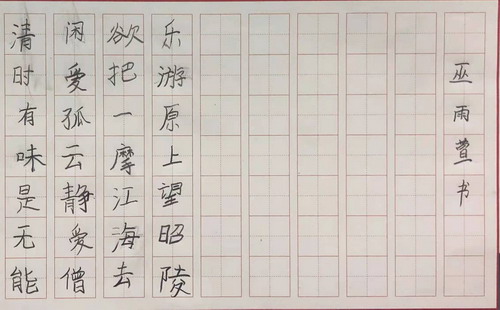 清时有味是无能
闲爱孤云静爱僧
欲把一摩江海去
乐游原上望昭陵
巫雨萱书